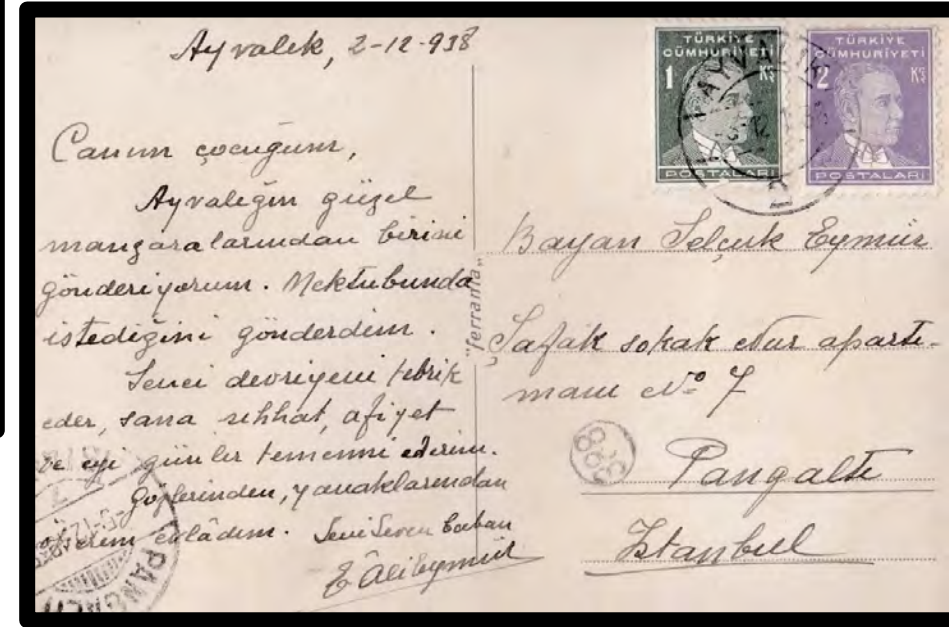 Ayvalık, 2-12-938
Canım çocuğum,
Ayvalığın güzel
manzaralarından birisini
gönderiyorum. Mektubunda
istediğini gönderdim.
Senei devriyeni tebrik
eder, sana sıhhat, afiyet
ve eyi günler temenni ederim.
Gözlerinden, yanaklarından
öperim evlâdım. Seni Seven baban
Ali Eymür
"ferrania"
TÜRKİYE
CÜMHURİYETİ
1 KŞ
POSTALARI
TÜRKİYE
CÜMHURİYETİ
2 KŞ
POSTALARI
AYVALIK
Bayan Selçuk Eymür
Şafak sokak Nur aparti-
manı No 7
Pangaltı
Istanbul
388
PANGALTI